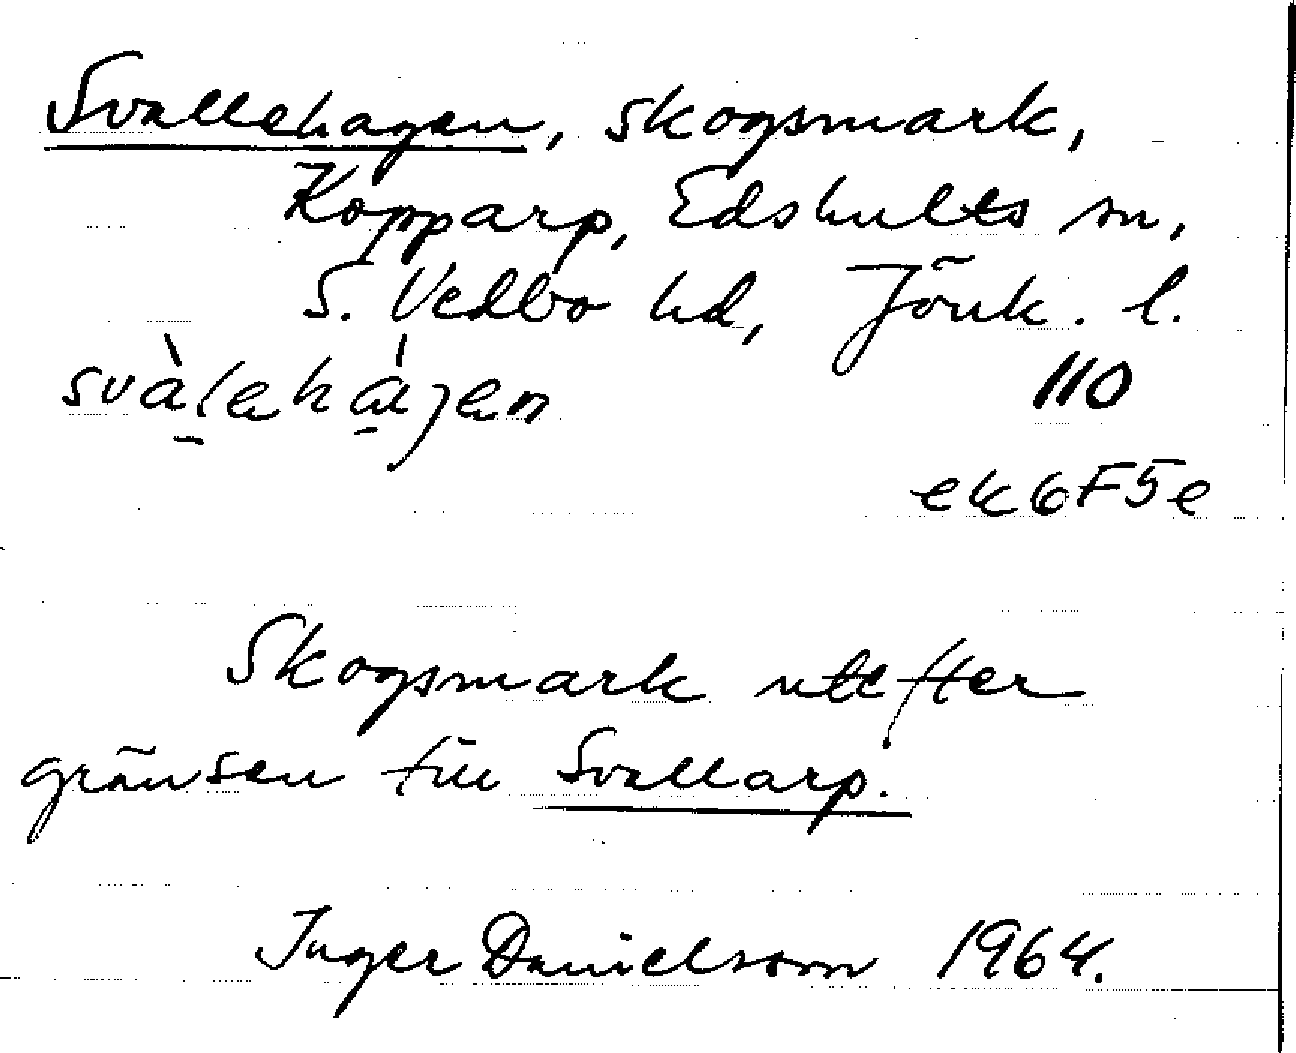 Svallehagen, skogsmark,
Kopparp, Edshults sn,
S. Vedbo hd, Jönk. l.
svàlehágen
110
ek 6F5e
Skogsmark utefter
gränsen till Svallarp.
Inger Danielsson 1964.